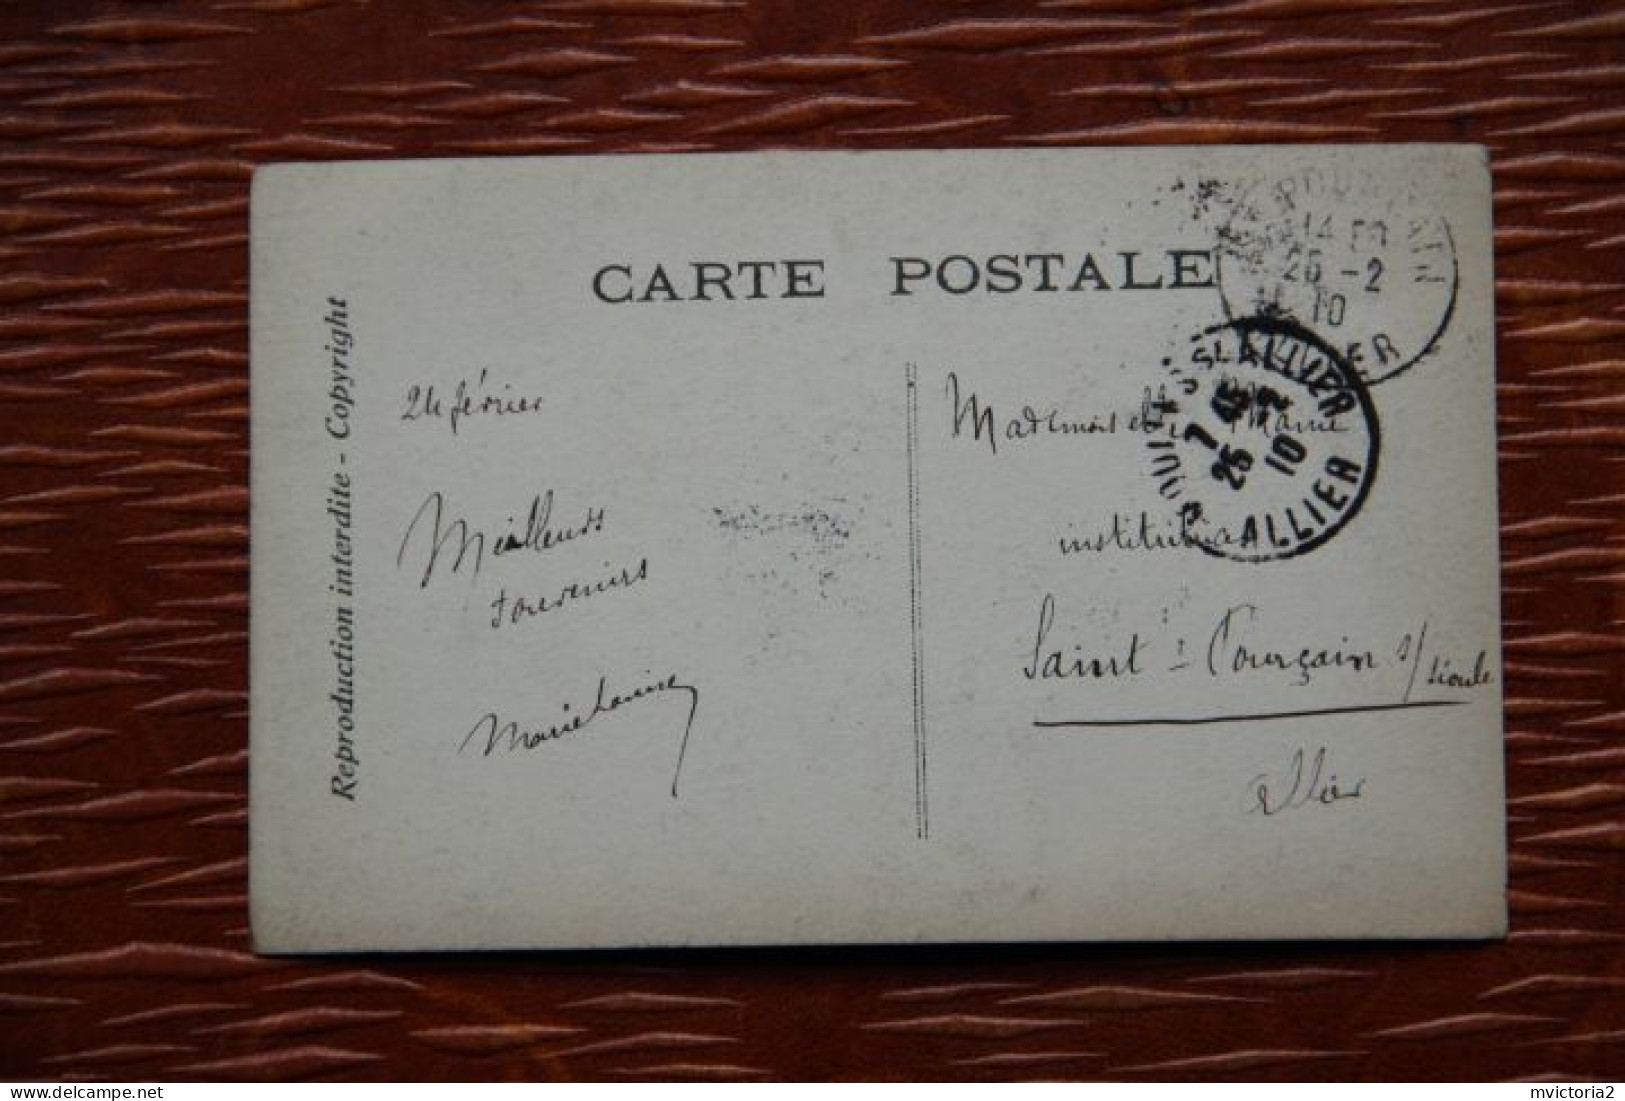 CARTE POSTALE
Reproduction interdite - Copyright
24 février
Meilleurs
souvenirs
Marie Louise
Mademoiselle
institutrice
Saint-Pourçain s/
Sioule
Allier
14
25 -2
10
S S ALLIER
7 45
25 -2
10
ALLIER
mvictoria2